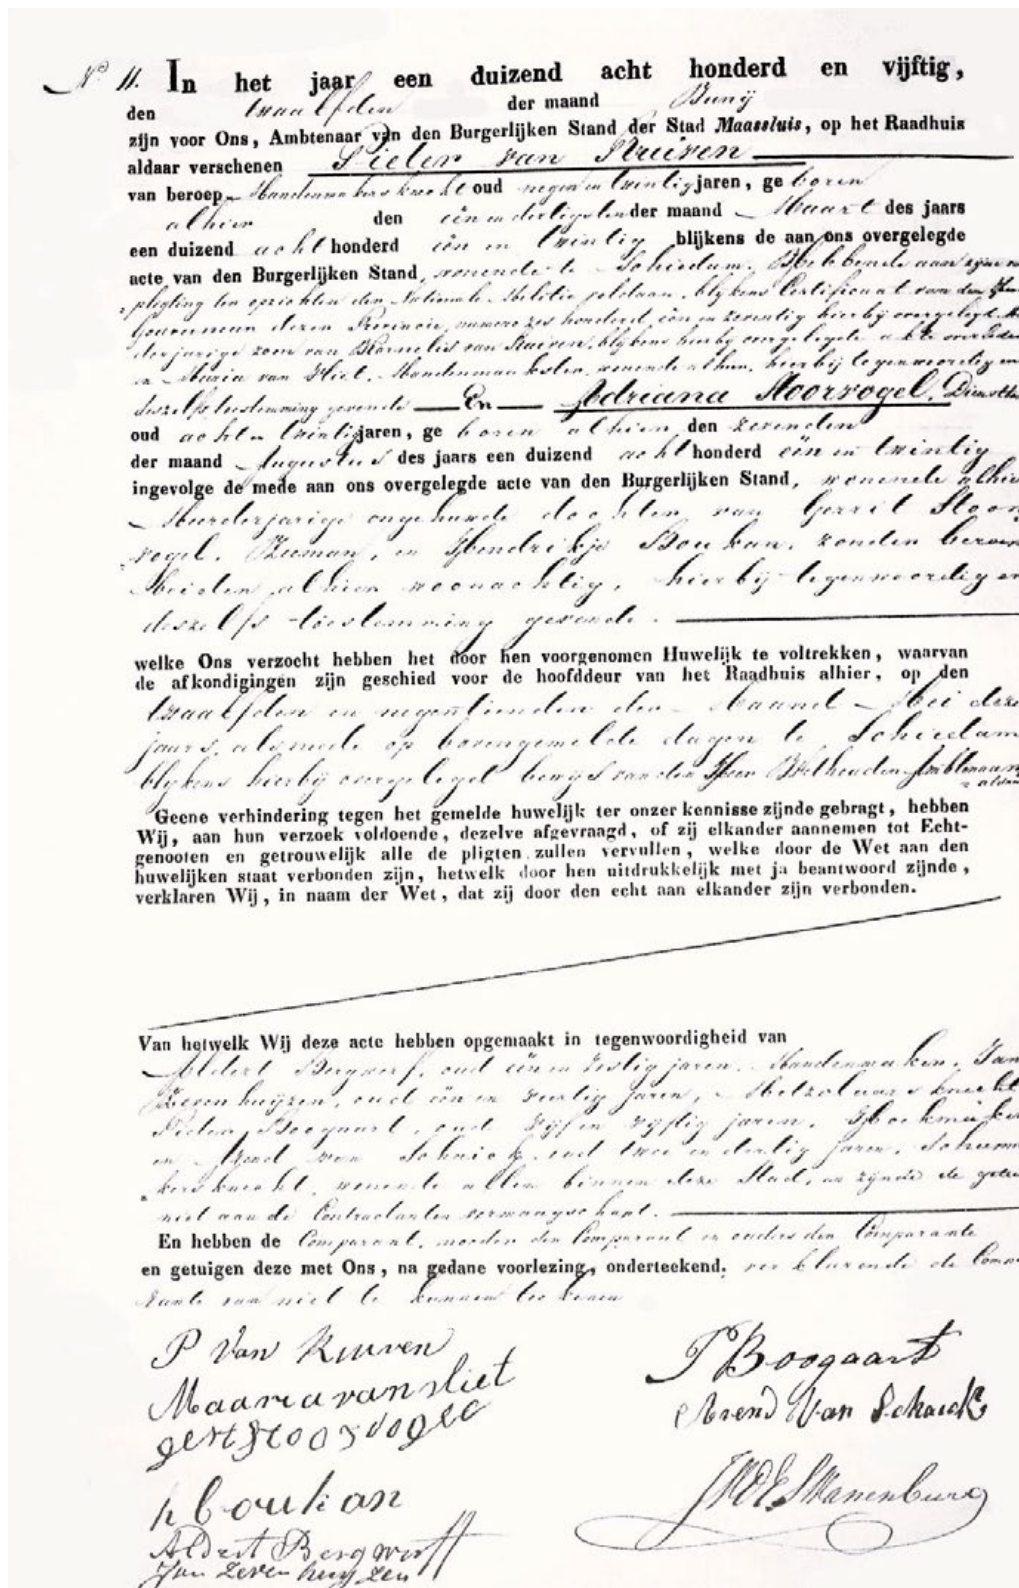 No 11. In het jaar een duizend acht honderd en vijftig,
den twaalfden der maand Junij
zijn voor Ons, Ambtenaar van den Burgerlijken Stand der Stad Maassluis, op het Raadhuis
aldaar verschenen Pieter van Kuiven
van beroep Mandenmakersknecht oud negen en twintig jaren, ge boren
alhier den één en dertigsten der maand Maart des jaars
een duizend acht honderd één en twintig blijkens de aan ons overgelegde
acte van den Burgerlijken Stand, wonende te Schiedam. Hebbende aan zijne ver
pligting ten opzichten den Nationale Militie voldaan, blijkens Certificaat van den Heer
Gouverneur dezer Provincie, numero zes honderd één en zeventig hierbij overgelegd. Me
derjarige zoon van Kornelis van Kuiven, blijkens hierbij overgelegde akte overleden
en Maria van Vliet, Mandenmaakster, wonende alhier, hierbij tegenwoordig en
deszelfs toestemming gevende En Adriana Stoorvogel, Dienstb
oud acht en twintig jaren, ge boren alhier den zevenden
der maand Augustus des jaars een duizend acht honderd één en twintig
ingevolge de mede aan ons overgelegde acte van den Burgerlijken Stand, wonende alhier
Meerderjarige ongehuwde dochter van Gerrit Stoor
vogel, Zeeman, en Hendrikje Boukan, zonder beroep
Beiden alhier woonachtig, hierbij tegenwoordig en
deszelfs toestemming gevende.
welke Ons verzocht hebben het door hen voorgenomen Huwelijk te voltrekken, waarvan
de afkondigingen zijn geschied voor de hoofddeur van het Raadhuis alhier, op den
twaalfden en negentienden der Maand Mei dezes
jaars, alsmede op bovengemelde dagen te Schiedam
blijkens hierbij overgelegd bewijs van den Heer Wethouder Ambtenaar
aldaar
Geene verhindering tegen het gemelde huwelijk ter onzer kennisse zijnde gebragt, hebben
Wij, aan hun verzoek voldoende, dezelve afgevraagd, of zij elkander aannemen tot Echt-
genooten en getrouwelijk alle de pligten zullen vervullen, welke door de Wet aan den
huwelijken staat verbonden zijn, hetwelk door hen uitdrukkelijk met ja beantwoord zijnde,
verklaren Wij, in naam der Wet, dat zij door den echt aan elkander zijn verbonden.
Van hetwelk Wij deze acte hebben opgemaakt in tegenwoordigheid van
Aldert Bergwerf, oud één en zestig jaren, Mandenmaker, Jan
Zevenhuijzen, oud één en veertig jaren, Metzelaarsknecht
Pieter Boogaart, oud vijf en vijftig jaren, Hoekmaker
en Arend van Schaick, oud twee en dertig jaren, Schoenma
kersknecht, wonende allen binnen deze Stad, en zijnde de getui
niet aan de Contractanten vermaagschapt.
En hebben de Comparant, moeder den Comparant en ouders der Comparante
en getuigen deze met Ons, na gedane voorlezing, onderteekend, verklarende de Compa
rante van niet te kunnen teekenen
P Van Kuiven
Maaria van vliet
gerrit stoorvogel
h boukan
Aldert Bergwerff
Jan Zevenhuyzen
P Boogaart
Arend Van Schaick
Swanenburg